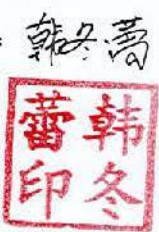 韩冬蕾
韩冬
蕾印